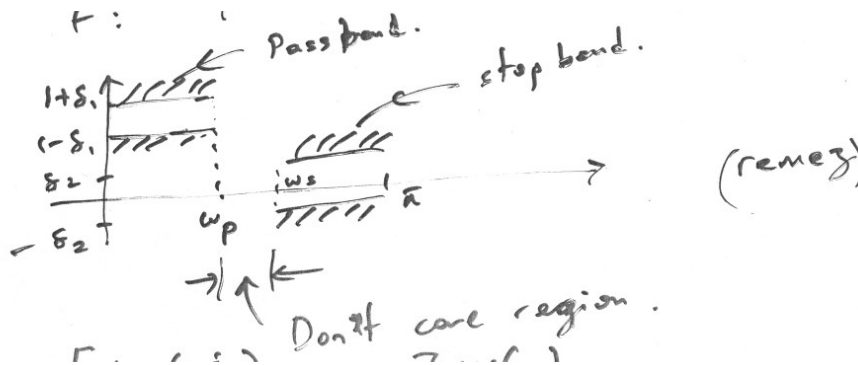 Pass band.
stop band.
1+δ₁
1-δ₁
δ₂
ws
(remez)
π
wp
-δ₂
Don't care region.